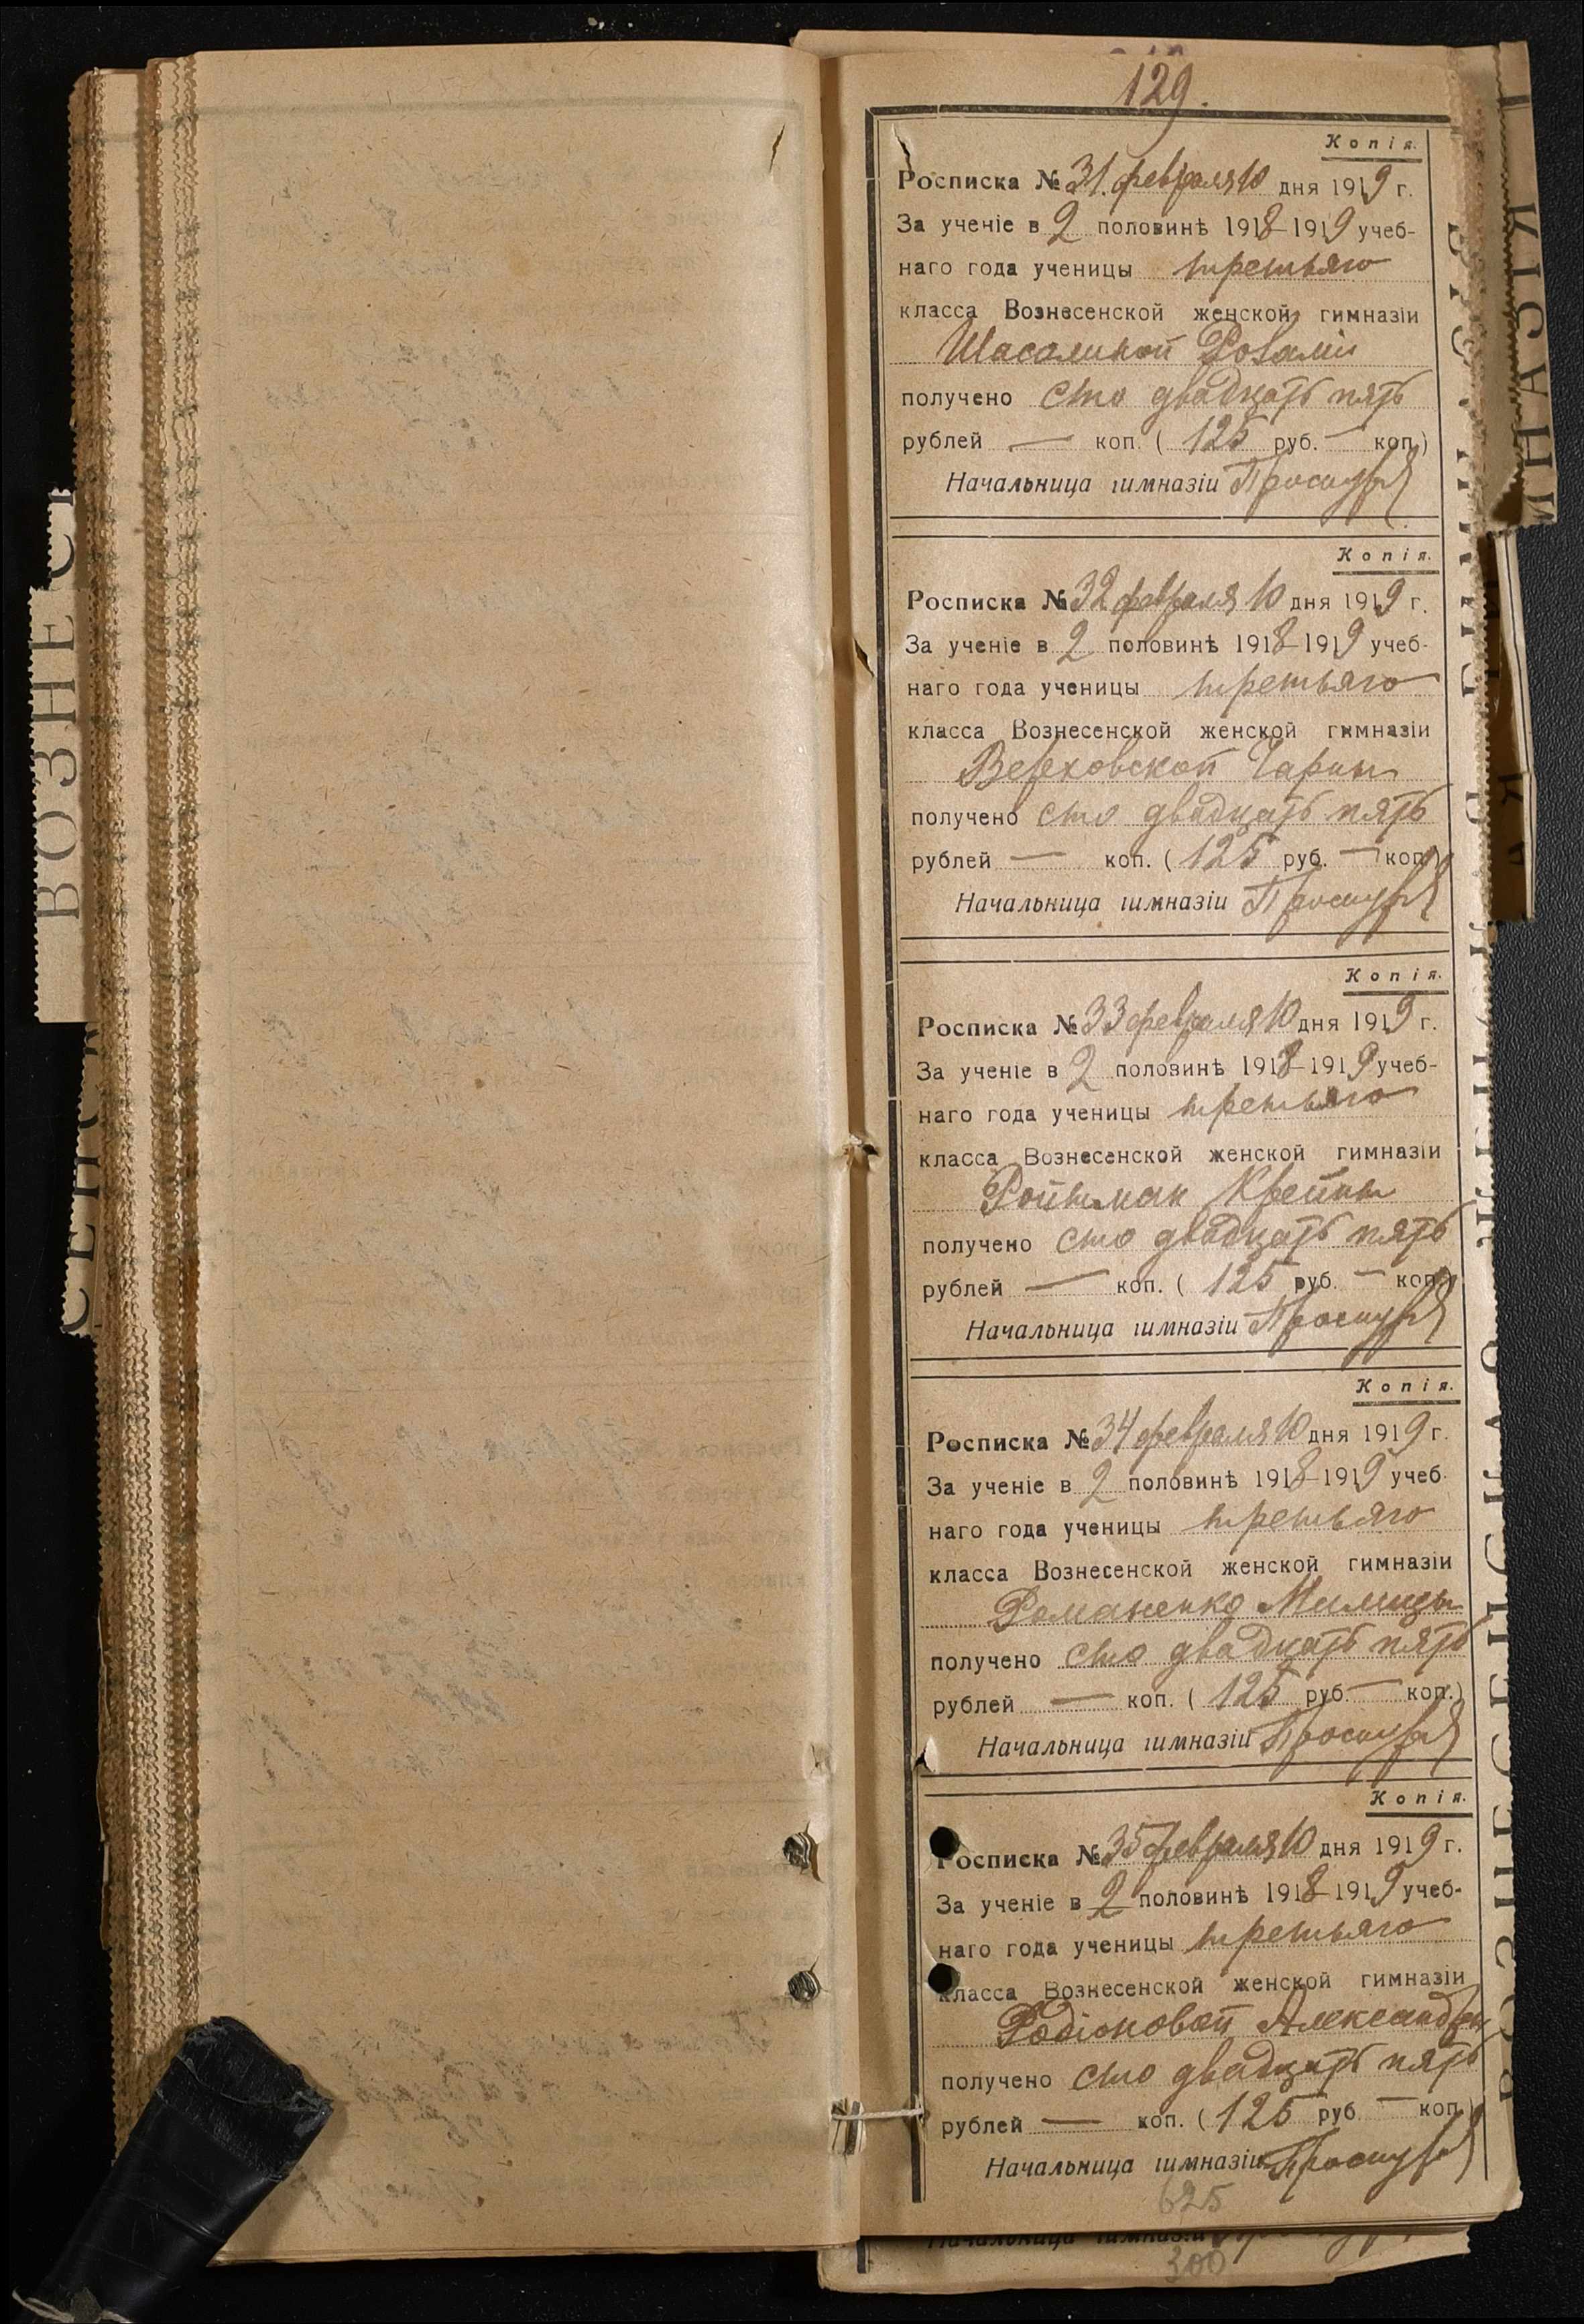 129.
Копія.
Росписка № 31. февраля 10 дня 1919 г.
За ученіе в 2 половинѣ 1918-1919 учеб-
наго года ученицы третьяго
класса Вознесенской женской гимназіи
Розаліи
получено сто двадцать пять
рублей — коп. ( 125 руб. — коп.)
Начальница гимназіи
Копія.
Росписка № 32 февраля 10 дня 1919 г.
За ученіе в 2 половинѣ 1918-1919 учеб-
наго года ученицы третьяго
класса Вознесенской женской гимназіи
Верховской
получено сто двадцать пять
рублей — коп. ( 125 руб. — коп.)
Начальница гимназіи
Копія.
Росписка № 33 февраля 10 дня 1919 г.
За ученіе в 2 половинѣ 1918-1919 учеб-
наго года ученицы третьяго
класса Вознесенской женской гимназіи
Ройтман Крейны
получено сто двадцать пять
рублей — коп. ( 125 руб. — коп.
Начальница гимназіи
Копія.
Росписка № 34 февраля 10 дня 1919 г.
За ученіе в 2 половинѣ 1918-1919 учеб-
наго года ученицы третьяго
класса Вознесенской женской гимназіи
Романенко Милицы
получено сто двадцать пять
рублей — коп. ( 125 руб. — коп.)
Начальница гимназіи
Копія.
Росписка № 35 февраля 10 дня 1919 г.
За ученіе в 2 половинѣ 1918-1919 учеб-
наго года ученицы третьяго
класса Вознесенской женской гимназіи
Родіоновой Александры
получено сто двадцать пять
рублей — коп. ( 125 руб. — коп.)
Начальница гимназіи
625
Начальница гимназіи
300
ВОЗНЕС